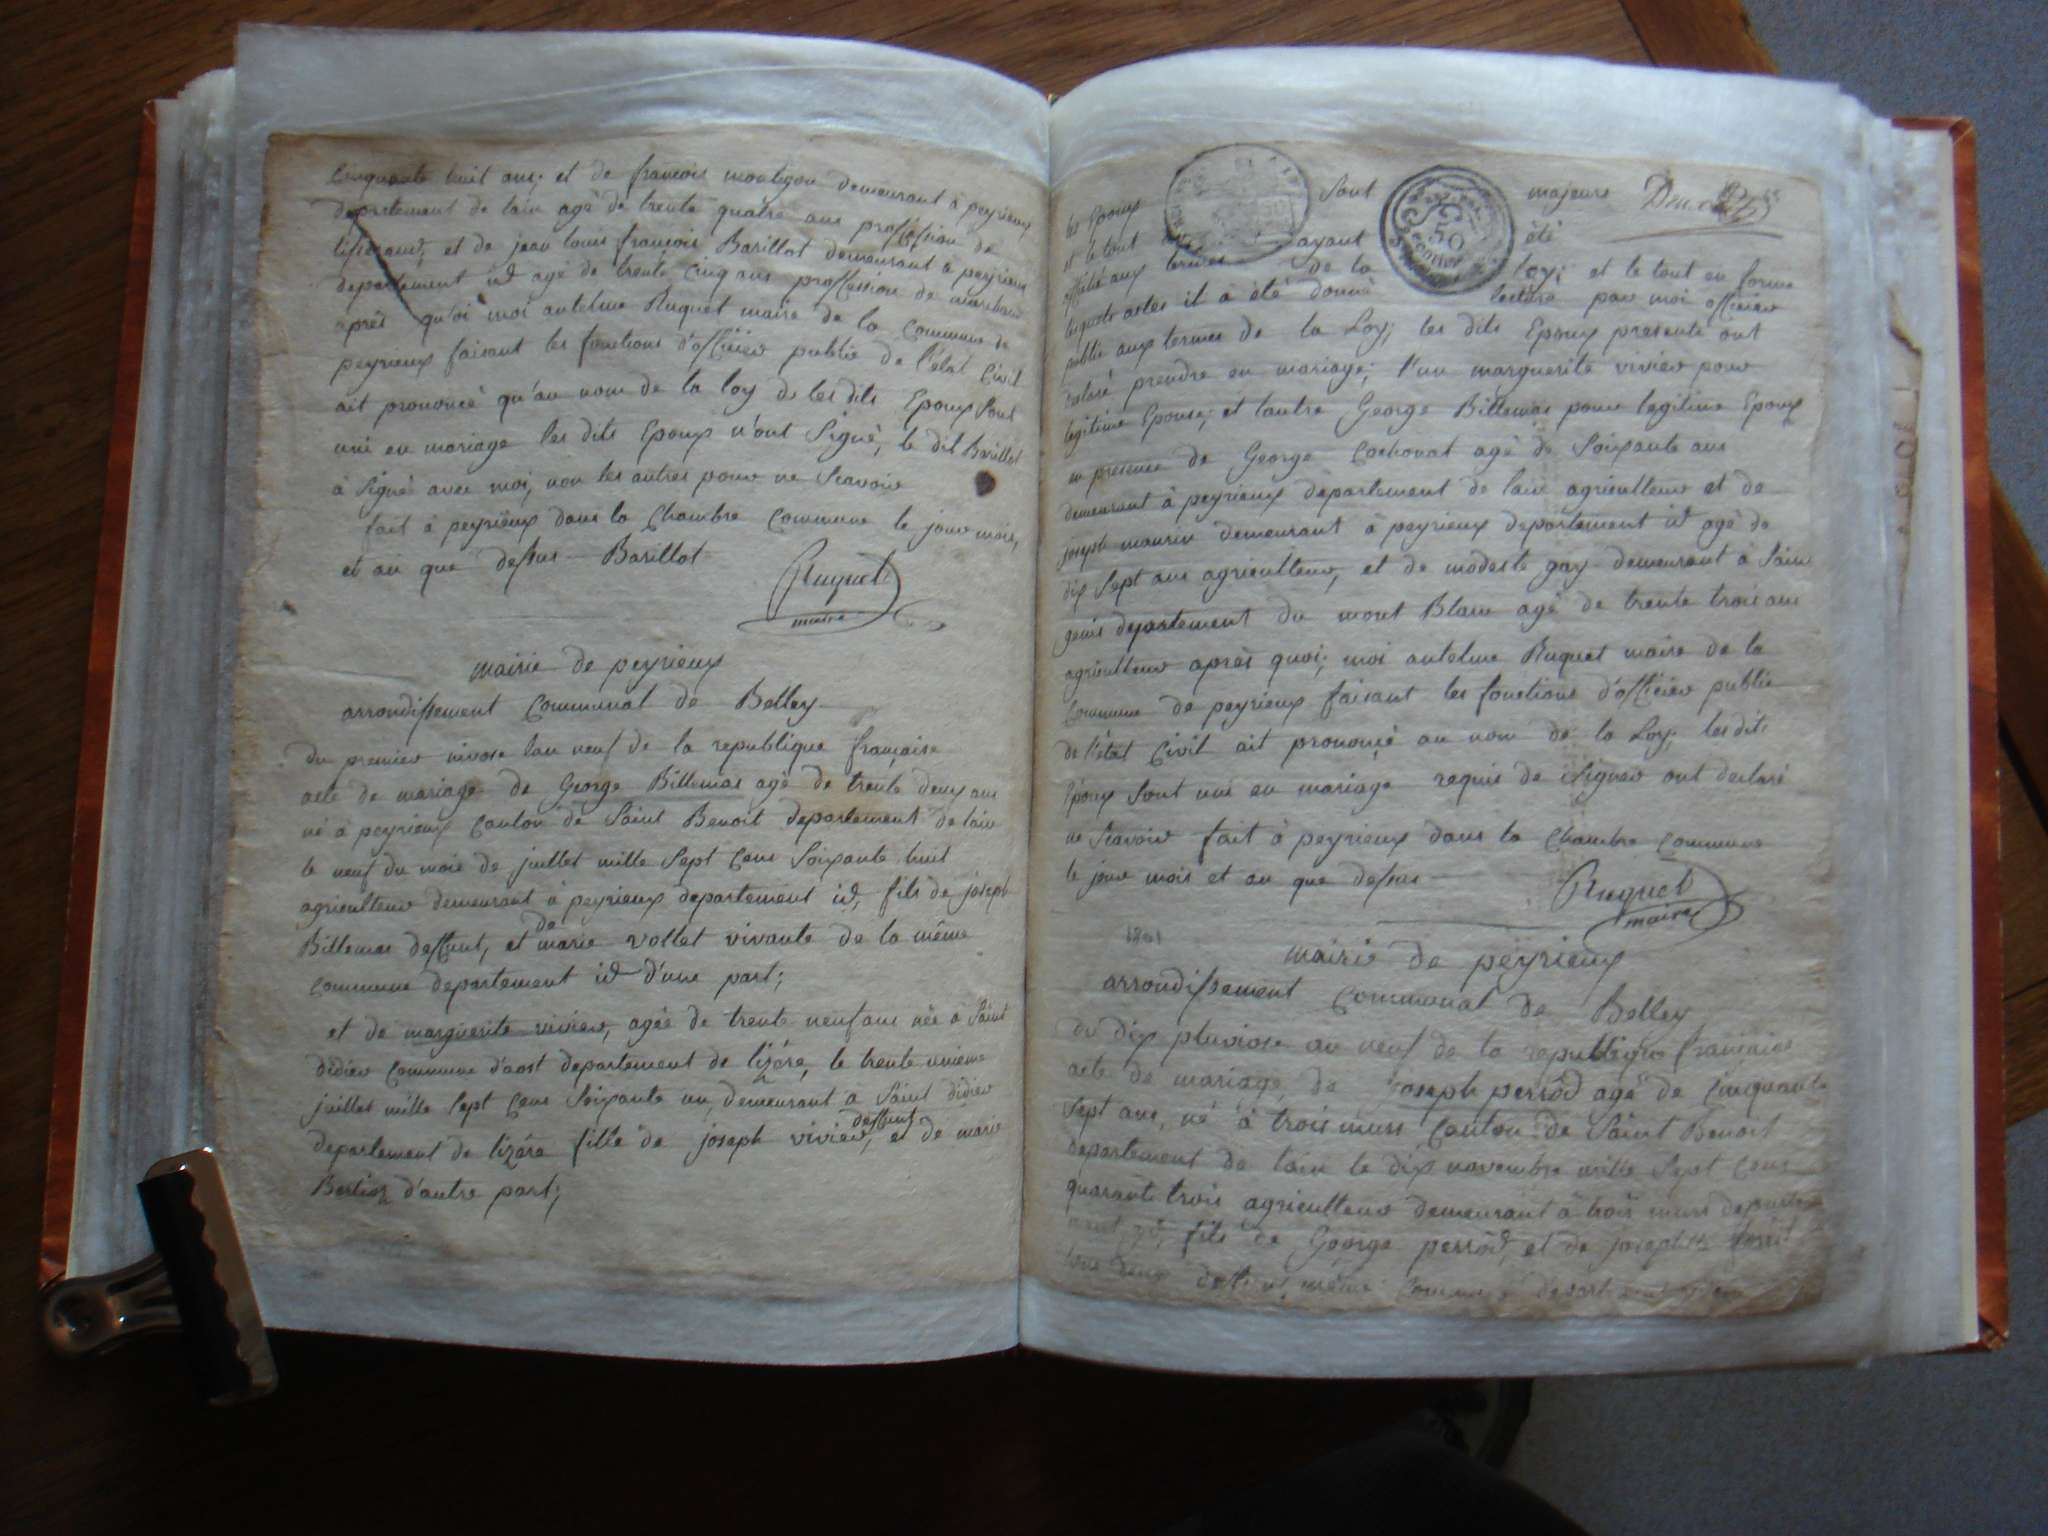 Cinquante huit ans; et de francois montigon demeurant à peyrieux
departement de lain agé de trente quatre ans proffession de
tisserand, et de jean louis françois Barillot demeurant a peyrieux
departement id agé de trente Cinq ans proffession de marchand
après qu'oi moi antelme Ruquet maire de la Commune de
peyrieux faisant les fonctions d'officier public de l'état Civil
ait prononcé qu'au nom de la loy de les dits Epoux Sont
uni en mariage les dits Epoux n'ont Signé, le dit Barillot
à Signé avec moi, non les autres pour ne Scavoir
fait à peyrieux dans la Chambre Commune le jour mois,
et an que dessus Barillot
Ruquet
maire
mairie de peyrieux
arrondissement Communal de Belley
du premier nivose lan neuf de la republique française
acte de mariage de George Billemas agé de trente deux ans
né à peyrieux Canton de Saint Benoit departement de lain
le neuf du mois de juillet mille Sept Cens Soixante huit
agriculteur demeurant à peyrieux departement id, fils de joseph
Billemas deffunt, et de marie vollet vivante de la même
Commune departement id d'une part;
et de marguerite vivier, agée de trente neuf ans née a Saint
didier Commune d'aost departement de lizére, le trente unieme
juillet mille Sept Cens Soixante un, demeurant a Saint didier
departement de lizére fille de joseph vivier, deffunt et de marie
Bertioz d'autre part;
les Epoux Sont majeurs
et le tout ayant été
affiché aux termes de la loy; et le tout en forme
lesquels actes il à été donné lecture par moi officier
public aux termes de la Loy; les dits Epoux presents ont
declaré prendre en mariage; l'un marguerite vivier pour
legitime Epouse; et lautre George Billemas pour legitime Epoux
en presence de George Cochonat agé de Soixante ans
demeurant à peyrieux departement de lain agriculteur et de
joseph maurin demeurant à peyrieux departement id agé de
dix Sept ans agriculteur, et de modeste gay demeurant à Saint
genis departement du mont Blanc agé de trente trois ans
agriculteur après quoi; moi antelme Ruquet maire de la
Commune de peyrieux faisant les fonctions d'officier public
de l'état Civil ait prononcé au nom de la Loy, les dits
Epoux Sont uni en mariage requis de Signer ont declaré
ne Scavoir fait à peyrieux dans la Chambre Commune
le jour mois et an que dessus
Ruquet
maire
1801
mairie de peyrieux
arrondissement Communal de Belley
du dix pluviose an neuf de la republique francaise
acte de mariage de joseph perrod agé de Cinquante
Sept ans, né à trois murs Canton de Saint Benoit
departement de lain le dix novembre mille Sept Cens
quarante trois agriculteur demeurant à trois murs departe
ment id, fils de George perrod, et de josephte
tous deux même Commune departement